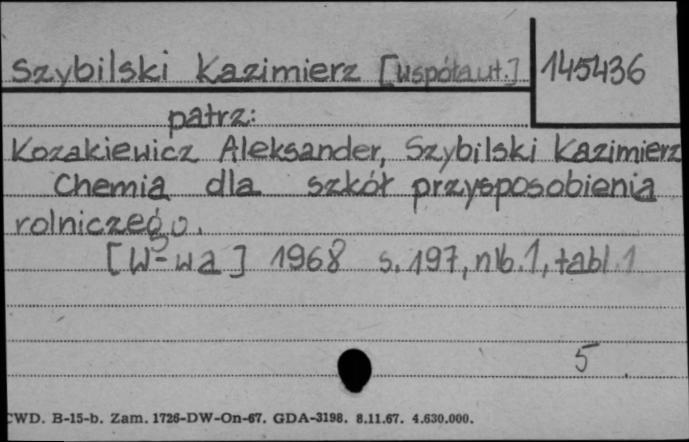 Szybilski Kazimierz [współaut.] 145436
patrz:
Kozakiewicz Aleksander, Szybilski Kazimierz
Chemia dla szkół przysposobienia
rolniczego.
[W-wa] 1968 s. 197, nlb. 1, tabl. 1
5
CWD. B-15-b. Zam. 1726-DW-On-67. GDA-3198. 8.11.67. 4.630.000.